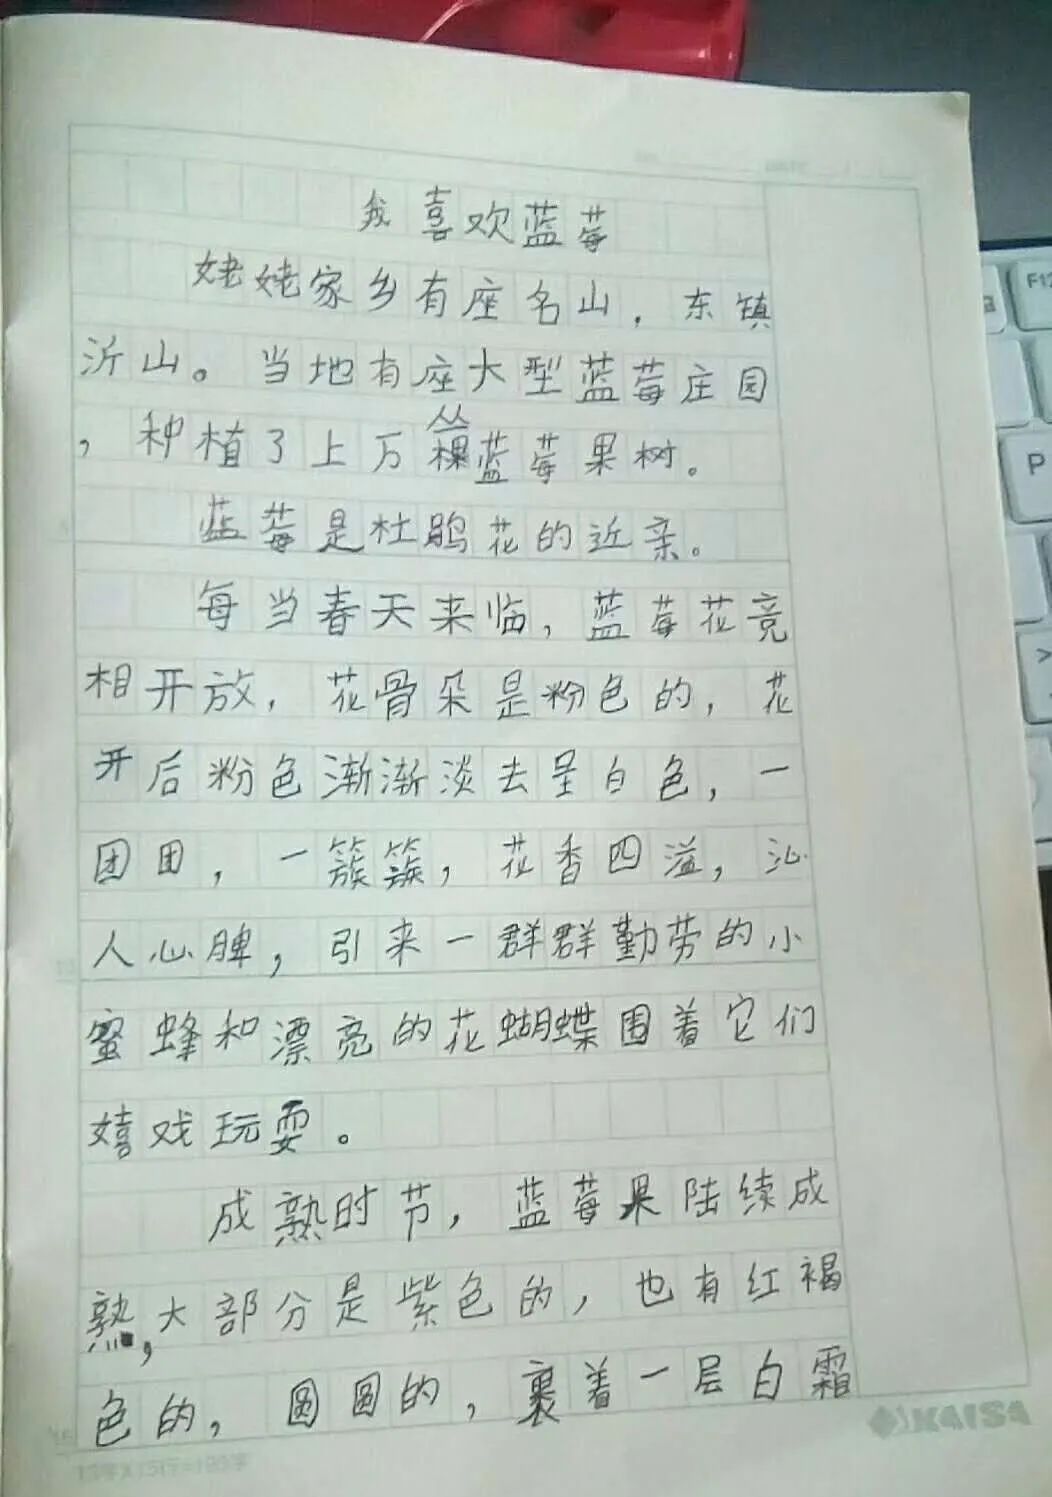 我喜欢蓝莓
姥姥家乡有座名山，东镇
沂山。当地有座大型蓝莓庄园
，种植了上万棵蓝莓果树。
丛
蓝莓是杜鹃花的近亲。
每当春天来临，蓝莓花竞
相开放，花骨朵是粉色的，花
开后粉色渐渐淡去呈白色，一
团团，一簇簇，花香四溢，沁
人心脾，引来一群群勤劳的小
蜜蜂和漂亮的花蝴蝶围着它们
嬉戏玩耍。
成熟时节，蓝莓果陆续成
熟，大部分是紫色的，也有红褐
色的，圆圆的，裹着一层白霜
KAISA
F12
P